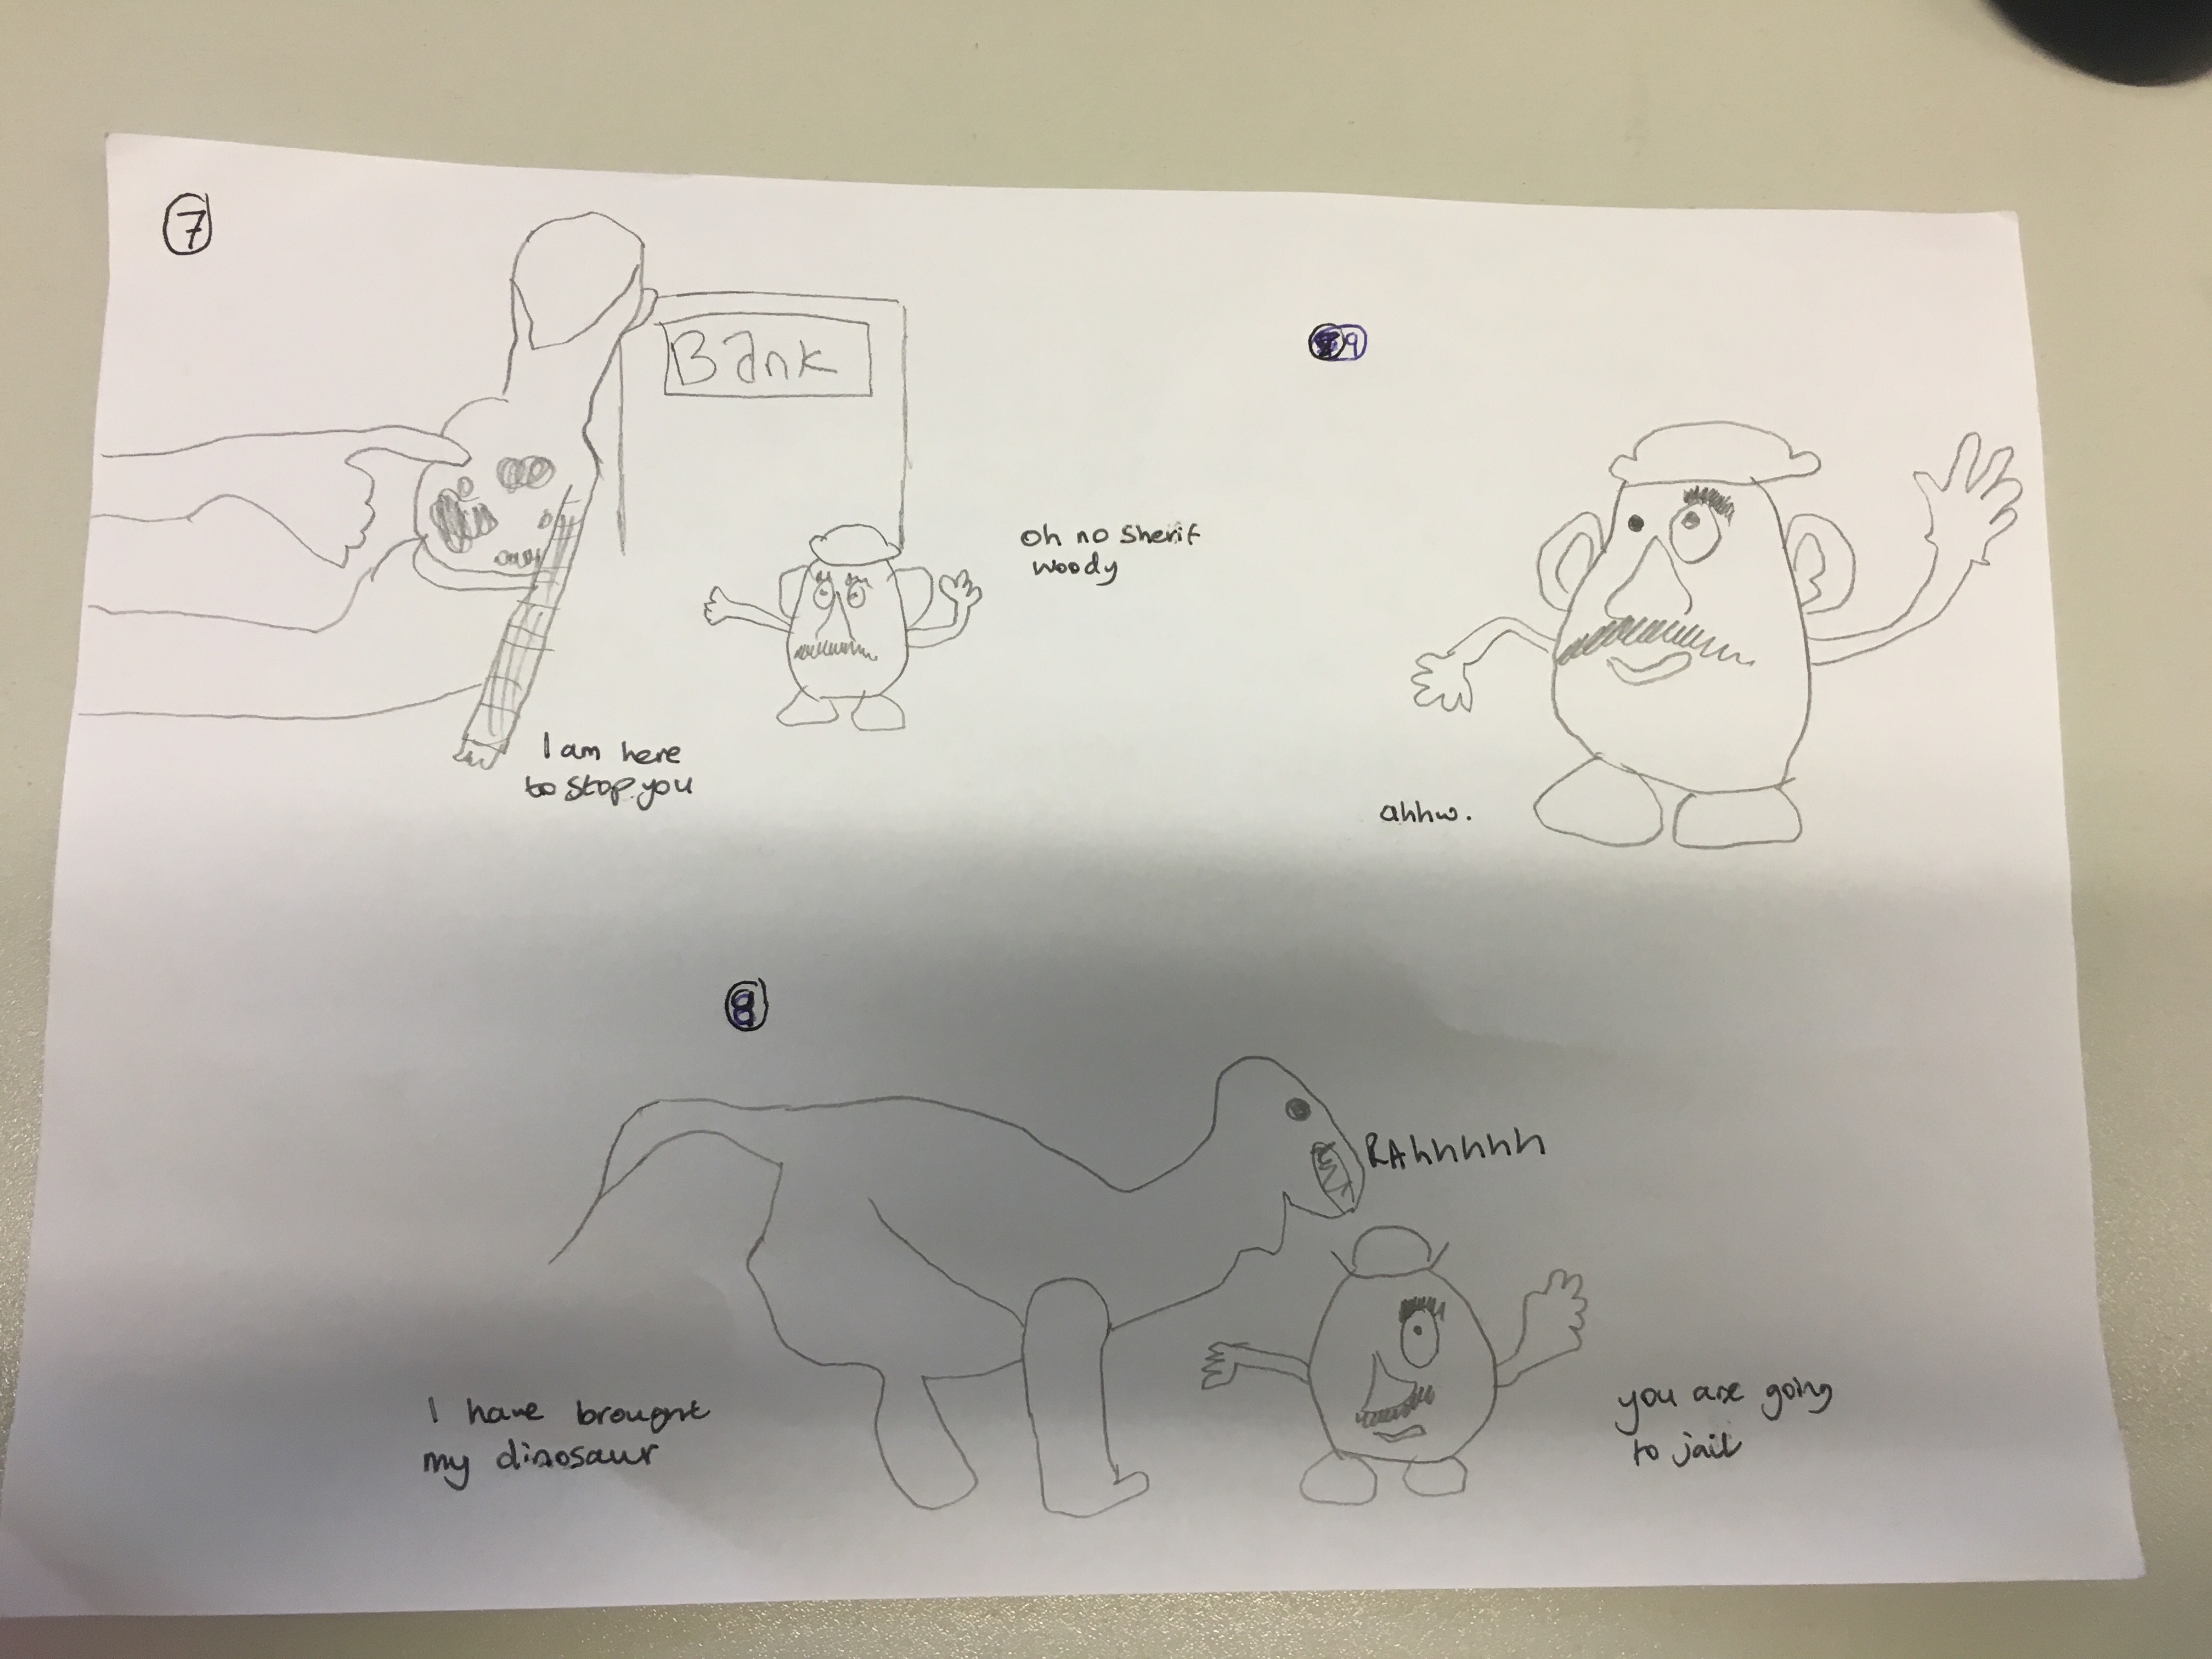 7
Bank
Oh no Sherif
woody
I am here
to stop you
9
ahhw.
8
RAhhhhhh
I have brought
my dinosaur
you are going
to jail